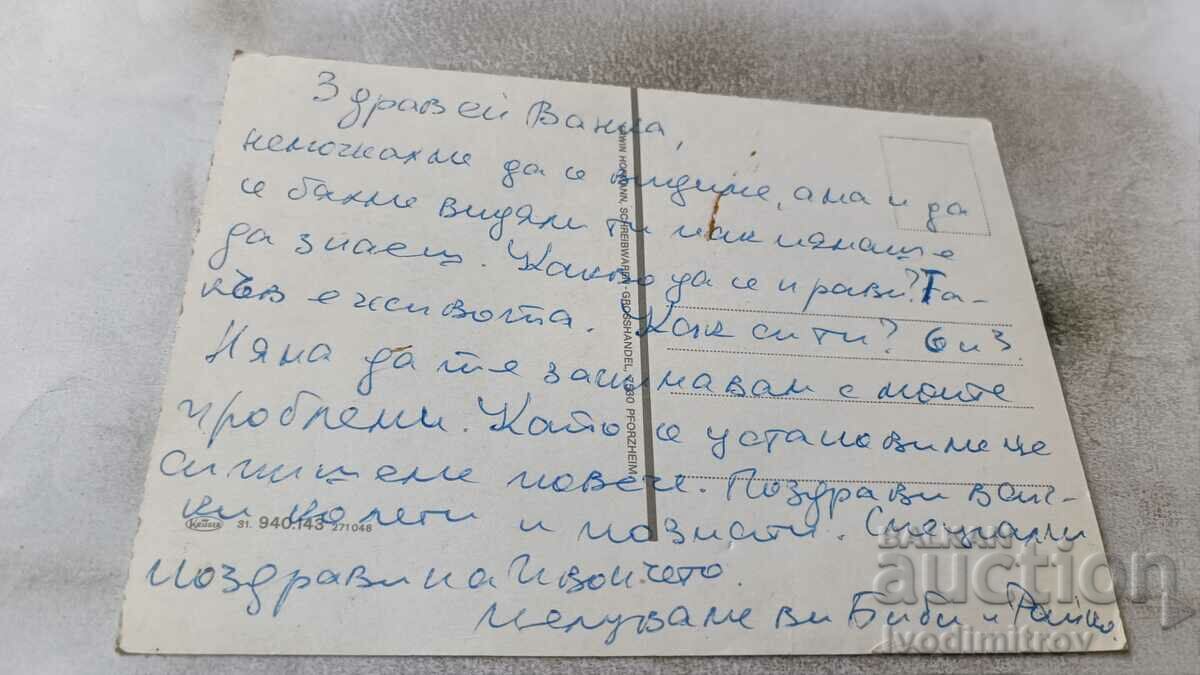 Здравей Ванка,
непочкахме да се видиме, ама и да
се бяхме видяли ти пак нямаше
да знаещ. Какво да се прави? Та-
къв е живота. Как си ти? Би З.
Няма да те занимавам с моите
проблеми. Като се установиме ще
си пишеме повече. Поздрави вси-
ки колеги и познати. Специални
поздрави на Ивончето.
Целуваме ви Биби и Райчо.
ERWIN HOHMANN, SCHREIBWAREN-GROSSHANDEL, 7530 PFORZHEIM
Krüger 31. 940.143 271048
BALKAN
auction
ivodimitrov